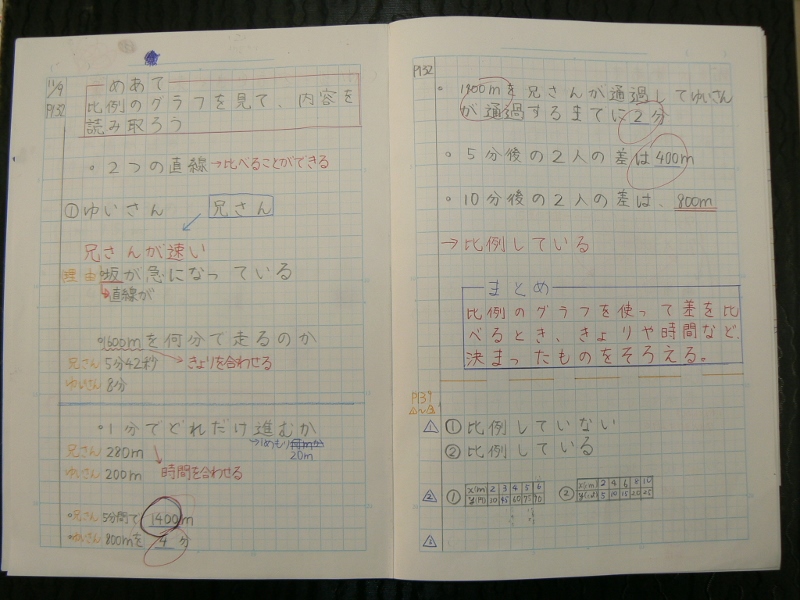 11/9
P132
めあて
比例のグラフを見て、内容を
読み取ろう
・2つの直線→比べることができる
①ゆいさん 兄さん
兄さんが速い
理由 坂が急になっている
→直線が
・1600mを何分で走るのか
兄さん 5分42秒 →きょりを合わせる
ゆいさん 8分
・1分でどれだけ進むか
→1めもり何mか
20m
兄さん 280m
ゆいさん 200m 時間を合わせる
・兄さん 5分間で 1400m
・ゆいさん 800mを 4 分
P132
・1400mを兄さんが通過してゆいさん
が通過するまでに2分
・5分後の2人の差は400m
・10分後の2人の差は、800m
→比例している
まとめ
比例のグラフを使って差を比
べるとき、きょりや時間など、
決まったものをそろえる。
P139
1 ①比例していない
②比例している
2 ① 2 3 4 5 6
② 2 4 6 8 10
5 10 15 20 25